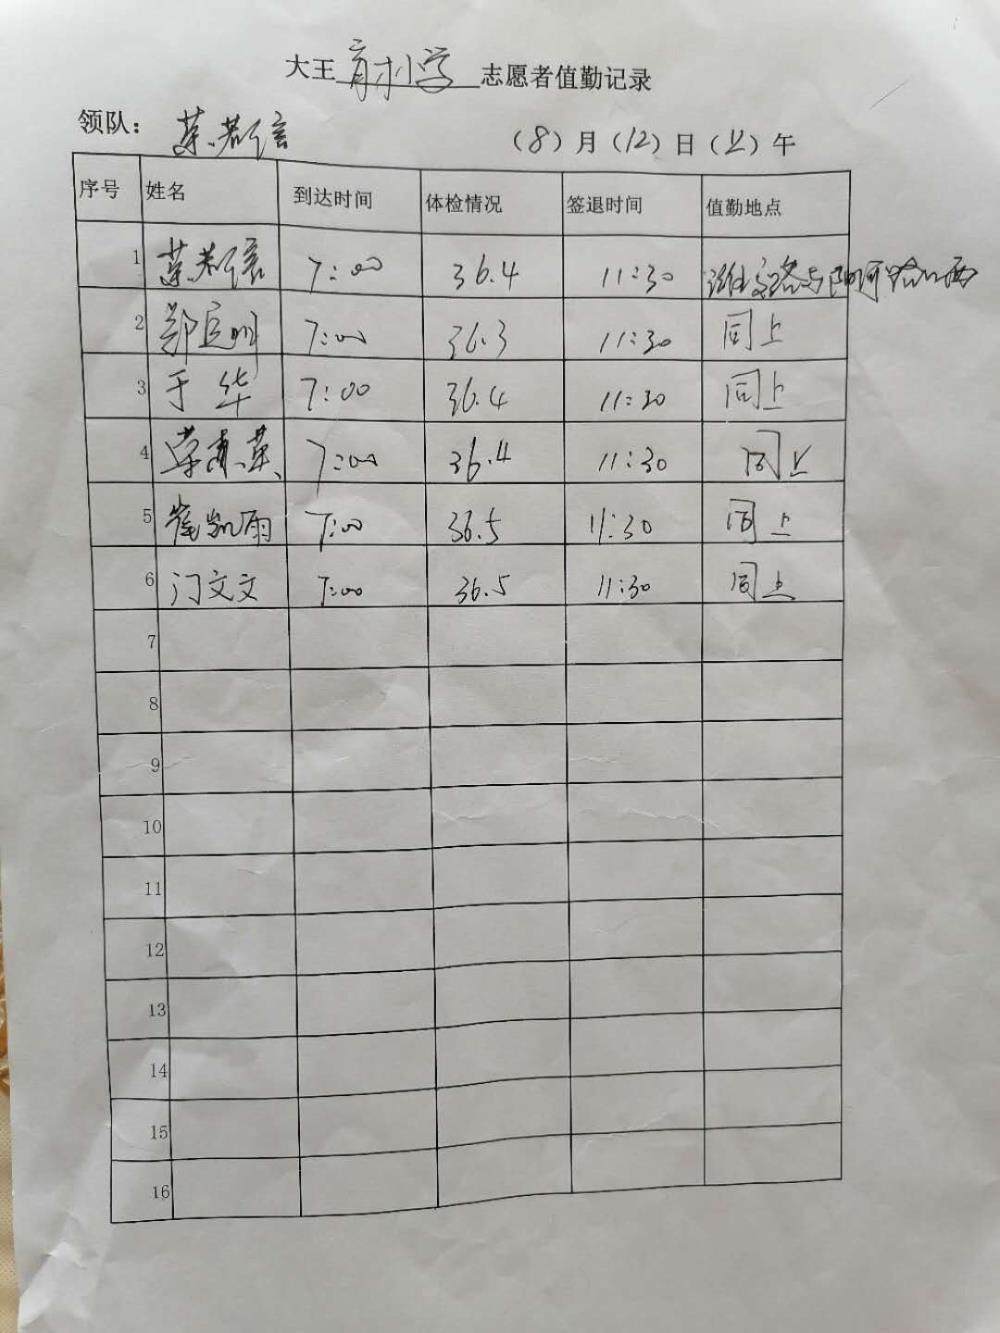 大王育才小学志愿者值勤记录
领队： （8）月（12）日（上）午
序号 姓名 到达时间 体检情况 签退时间 值勤地点
1 7:00 36.4 11:30
2 7:00 36.3 11:30 同上
3 于华 7:00 36.4 11:30 同上
4 7:00 36.4 11:30 同上
5 崔凯雨 7:00 36.5 11:30 同上
6 门文文 7:00 36.5 11:30 同上
7
8
9
10
11
12
13
14
15
16